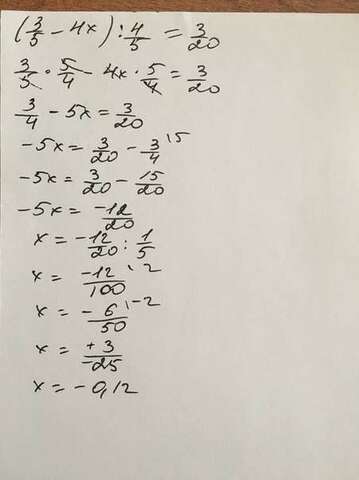 (3/5 - 4x) : 4/5 = 3/20
3/5 · 5/4 - 4x · 5/4 = 3/20
3/4 - 5x = 3/20
-5x = 3/20 - 3/4 \5
-5x = 3/20 - 15/20
-5x = -12/20
x = -12/20 : 1/5
x = -12/100 \2
x = -6/50 \-2
x = +3/-25
x = -0,12